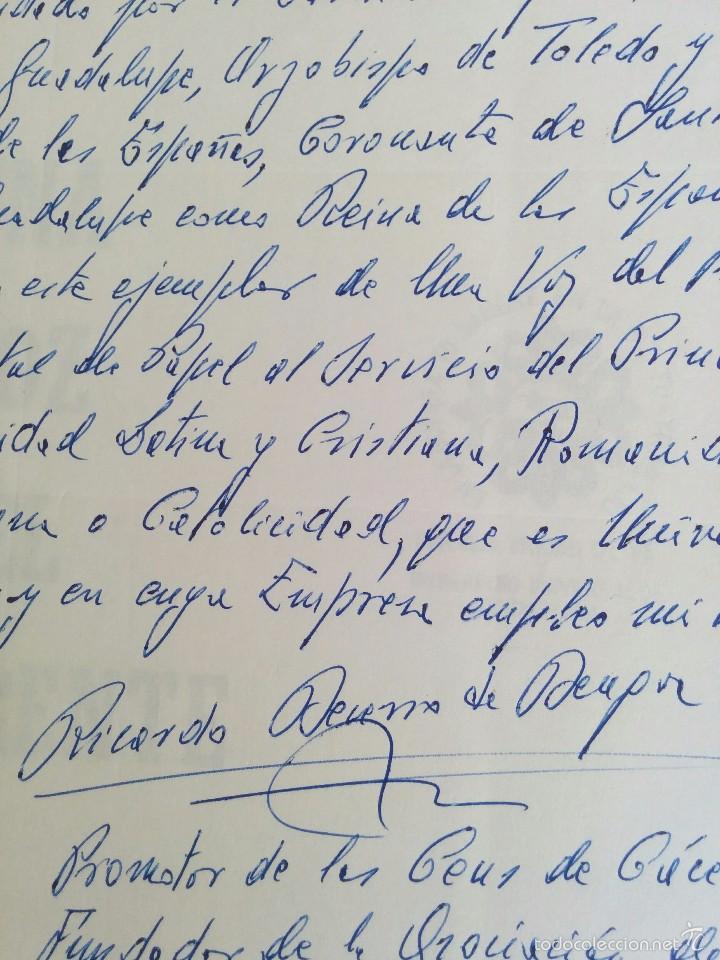 por el
Guadalupe, Arzobispo de Toledo y
de las Españas, Coronante de San
adalupe como Reina de las Españ
este ejemplar de Una Voz del
tal de Papel al Servicio del Prin
idad Latina y Cristiana, Romanid
o Catolicidad, que es Unive
y en cuya Empresa empleo mi
Ricardo Becerro de Bengoa
Promotor de las Cenas de Các
Fundador de la Asociación de
todocoleccion.net